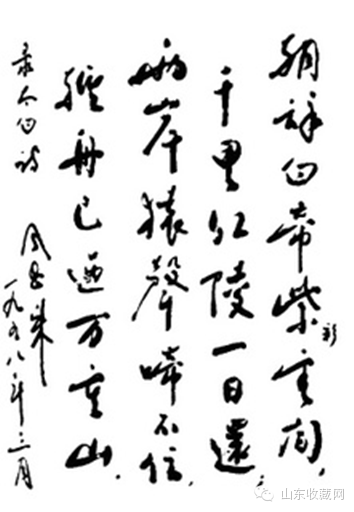 朝辞白帝紫云间，
彩
千里江陵一日還；
两岸猿聲啼不住，
轻舟已過万重山．
录太白诗
周恩来
一九五八年三月
山东收藏网